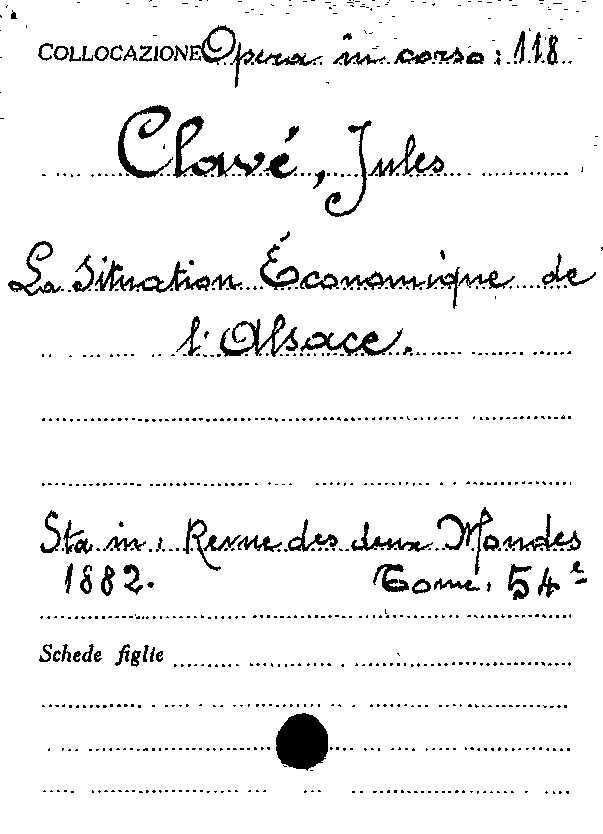 COLLOCAZIONE Opera in corso: 118
Clavé, Jules
La Situation Économique de
l'Alsace.
Sta in: Revue des deux Mondes
1882. Tome. 54e
Schede figlie